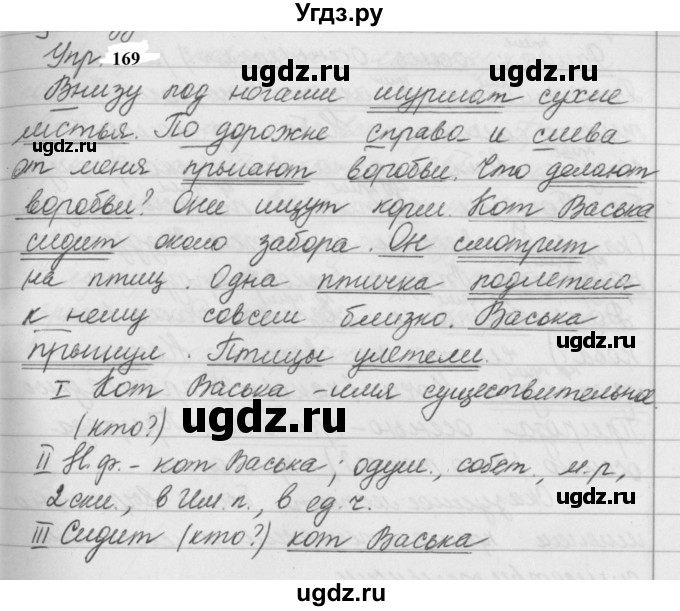 Угдз.ру
Упр. 169
ugdz.ru
Внизу под ногами шуршат сухие
листья. По дорожке справа и слева
ugdz.ru
от меня прыгают воробьи. Что делают
воробьи? Они ищут корм. Кот Васька
сидит около забора. Он смотрит
на птиц. Одна птичка подлетела
к нему совсем близко. Васька
прыгнул. Птицы улетели.
I Кот Васька - имя существительное
(кто?)
ugdz.ru
II Н.ф. - кот Васька; одуш., собст., м.р.,
2 скл., в Им.п., в ед.ч.
III Сидит (кто?) кот Васька
ugdz.ru ugdz.ru